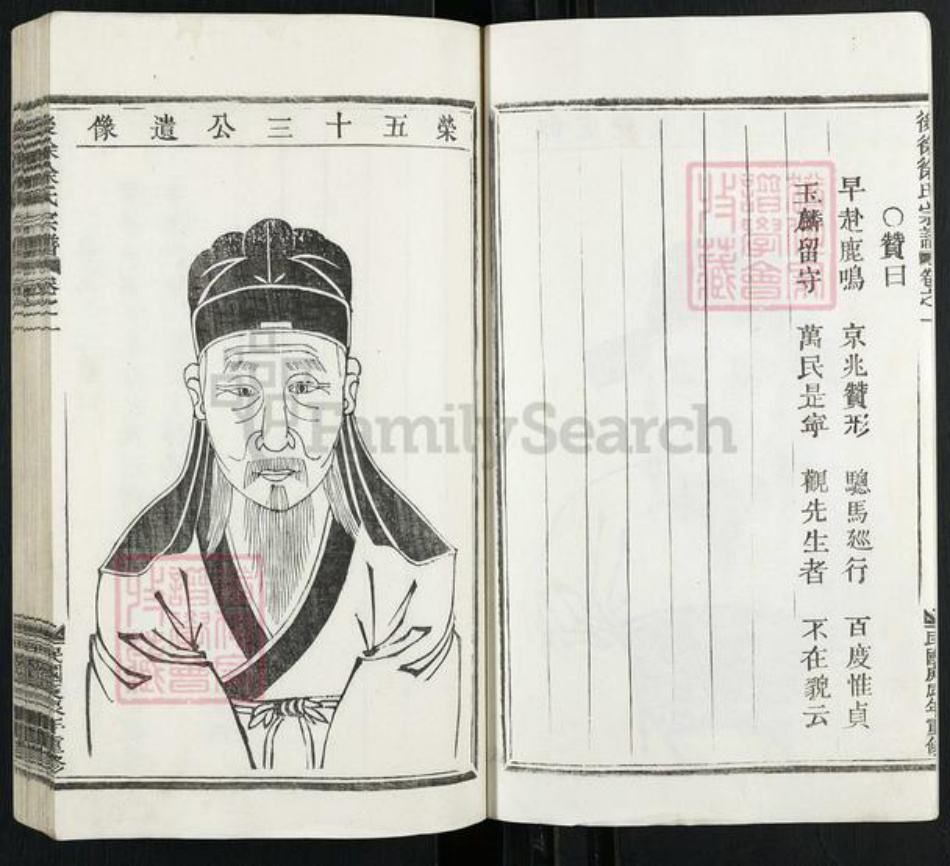 後徐徐氏宗譜 卷之一
○贊曰
早赴鹿鳴 京兆贊形 驄馬廵行 百度惟貞
玉麟留守 萬民是寧 觀先生者 不在貌云
榮五十三公遺像
FamilySearch